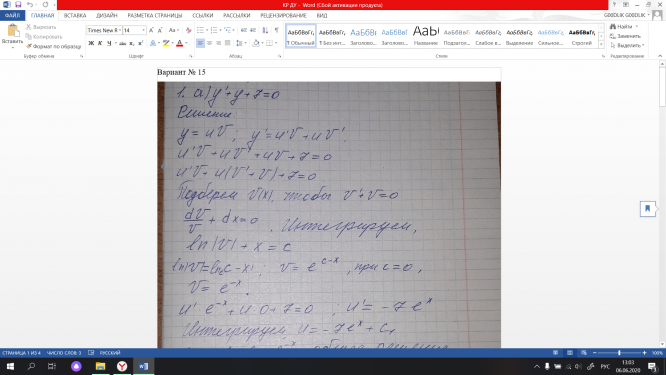 КР ДУ - Word (Сбой активации продукта)
ФАЙЛ ГЛАВНАЯ ВСТАВКА ДИЗАЙН РАЗМЕТКА СТРАНИЦЫ ССЫЛКИ РАССЫЛКИ РЕЦЕНЗИРОВАНИЕ ВИД
Вставить Вырезать Копировать Формат по образцу
Times New R 14
АаБбВвГг, АаБбВвГг, АаБбВ АаБбВвГ АаБ АаБбВвГ АаБбВвГг АаБбВвГг АаБбВвГг АаБбВвГг
¶ Обычный ¶ Без инт... Заголово... Заголово... Название Подзагол... Слабое в... Выделение Сильное... Строгий
Найти Заменить Выделить
Буфер обмена Шрифт Абзац Стили Редактирование
Вариант № 15
1. а) y' + y + 7 = 0
Решение
y = uv; y' = u'v + uv'.
u'v + uv' + uv + 7 = 0
u'v + u(v' + v) + 7 = 0
Подберем v(x), чтобы v' + v = 0
dv/v + dx = 0. Интегрируем,
ln|v| + x = c
v = e^(c-x), при c = 0,
v = e^-x.
u' · e^-x + u · 0 + 7 = 0, u' = -7e^x
Интегрируем u = -7e^x + C₁
СТРАНИЦА 1 ИЗ 4 ЧИСЛО СЛОВ: 3 РУССКИЙ 100%
РУС 13:03 06.06.2020